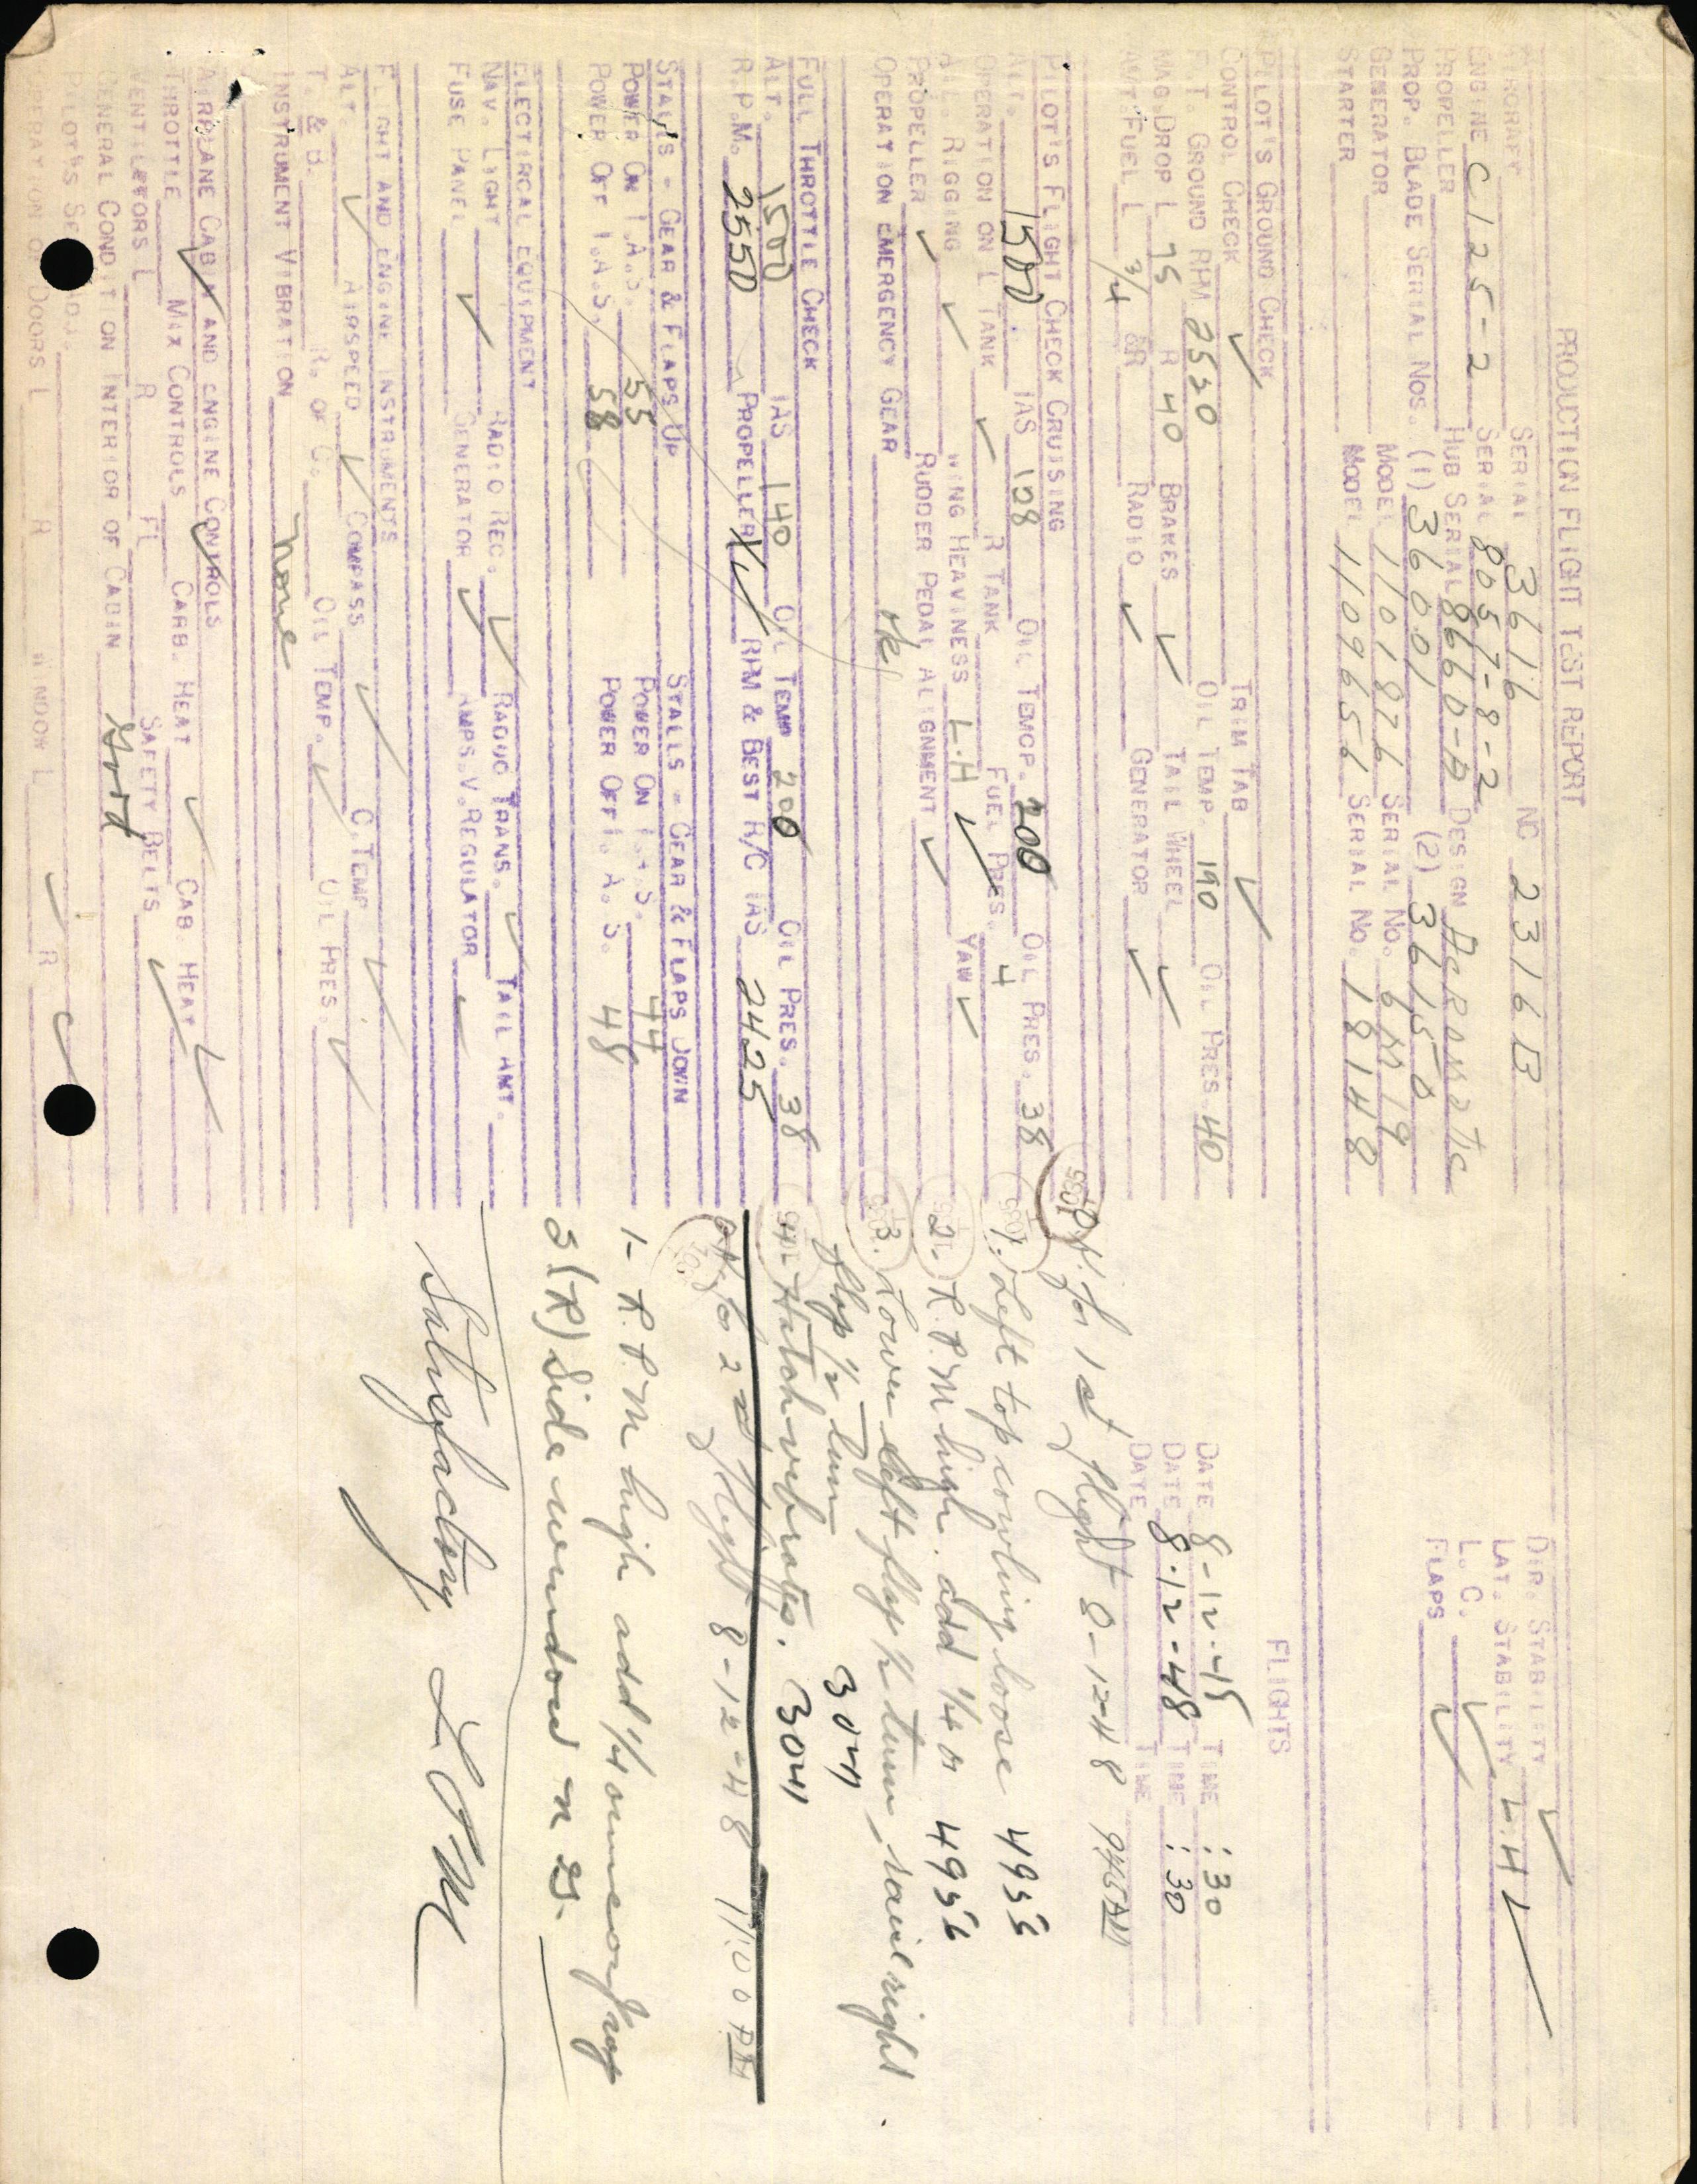 PRODUCTION FLIGHT TEST REPORT
SERIAL 3616 NC 2316B DIR. STABILITY ✓
ENGINE C125-2 SERIAL 8057-8-2 LAT. STABILITY L.H ✓
PROPELLER HUB SERIAL 8660-A DESIGN AeRomatic L.C. ✓
PROP. BLADE SERIAL NOS. (1) 36001 (2) 36150 FLAPS ✓
GENERATOR MODEL 1101876 SERIAL NO. 6M19
STARTER MODEL 1109656 SERIAL NO. 18148
FLIGHTS
PILOT'S GROUND CHECK
CONTROL CHECK ✓ TRIM TAB ✓
F.T. GROUND RPM 2520 OIL TEMP. 190 OIL PRES. 40 DATE 8-12-48 TIME :30
MAG. DROP L 75 R 40 BRAKES ✓ TAIL WHEEL ✓ DATE 8-12-48 TIME :30
FUEL L 3/4 R RADIO ✓ GENERATOR ✓ DATE TIME
PILOT'S FLIGHT CHECK CRUISING
ALT. 1500 IAS 128 OIL TEMCP. 200 OIL PRES. 38
OPERATION ON L TANK ✓ R TANK FUEL PRES. 4
RIGGING ✓ WING HEAVINESS L.H ✓ YAW ✓
PROPELLER ✓ RUDDER PEDAL ALIGNMENT ✓
OPERATION EMERGENCY GEAR ok
FULL THROTTLE CHECK
ALT. 1500 IAS 140 OIL TEMP 200 OIL PRES. 38
R.P.M. 2550 PROPELLER RPM & BEST R/C IAS 2425
STALLS - GEAR & FLAPS UP STALLS - GEAR & FLAPS DOWN
POWER ON I.A.S. 55 POWER ON I.A.S. 44
POWER OFF I.A.S. 58 POWER OFF I.A.S. 48
ELECTIRCAL EQUIPMENT
NAV. LIGHT RADIO REC. ✓ RADIO TRANS. ✓ TAIL ANT.
FUSE PANEL ✓ GENERATOR ✓ AMPS.V.REGULATOR ✓
FLIGHT AND ENGINE INSTRUMENTS
ALT. ✓ AIRSPEED ✓ COMPASS ✓ C.TEMP ✓
T. & B. R. OF C. OIL TEMP. ✓ OIL PRES. ✓
INSTRUMENT VIBRATION None
AIRPLANE CABIN AND ENGINE CONTROLS
THROTTLE ✓ MIX CONTROLS ✓ CARB. HEAT ✓ CAB. HEAT ✓
VENTILATORS L R FL SAFETY BELTS ✓
GENERAL CONDITION ON INTERIOR OF CABIN Good
PILOT'S SEAT ADJ.
OPERATION OF DOORS L R WINDOW L ✓ R ✓
O.K. for 1st flight 8-12-48 945 AM
1. Left top cowling loose 4956
2. R.P.M high. add 1/4 4956
3. Lower left flap 1/2 turn, raise right
flap 1/2 turn 3041
4. Hatch vibrates. 3041
O.K. for 2nd flight 8-12-48 1/100 PM
1- R.P.M high add 1/4 ounce
3(R) Side window
Satisfactory